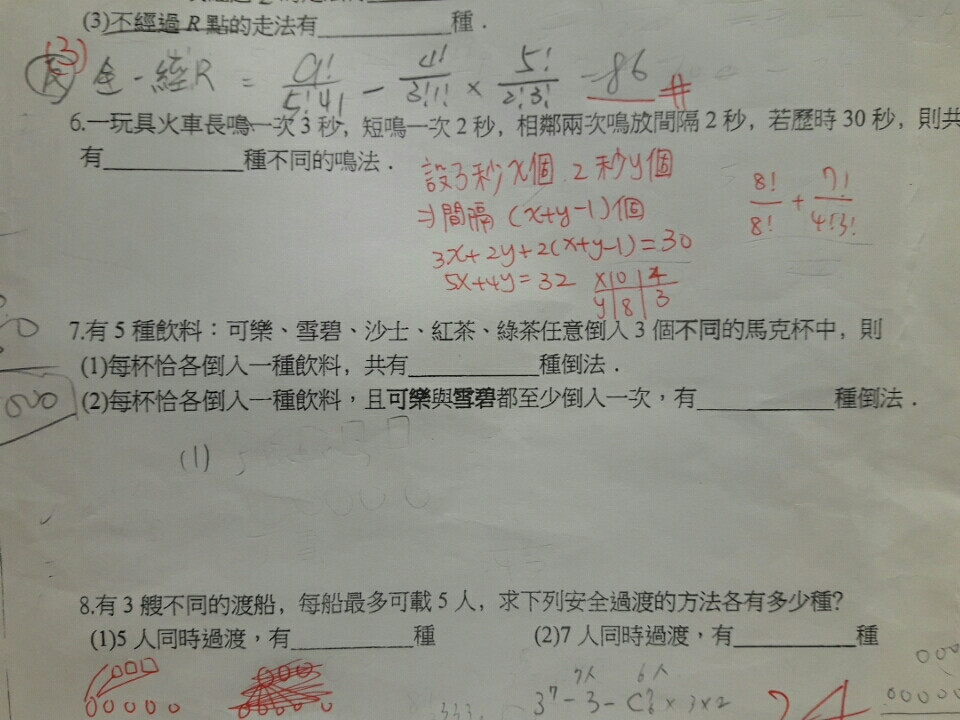 (3)不經過 R 點的走法有__________種．
(3) 全 - 經R = 9!/5!4! - 4!/3!1! × 5!/2!3! = 86 #
6.一玩具火車長鳴一次 3 秒，短鳴一次 2 秒，相鄰兩次鳴放間隔 2 秒，若歷時 30 秒，則共
有__________種不同的鳴法．
設3秒x個 2秒y個
⇒間隔 (x+y-1)個
3x+2y+2(x+y-1)=30
5x+4y=32
x|0|4
y|8|3
8!/8! + 7!/4!3!
7.有 5 種飲料：可樂、雪碧、沙士、紅茶、綠茶任意倒入 3 個不同的馬克杯中，則
(1)每杯恰各倒入一種飲料，共有__________種倒法．
(2)每杯恰各倒入一種飲料，且可樂與雪碧都至少倒入一次，有__________種倒法．
(1)
8.有 3 艘不同的渡船，每船最多可載 5 人，求下列安全過渡的方法各有多少種?
(1)5 人同時過渡，有__________種
(2)7 人同時過渡，有__________種
7人 6人